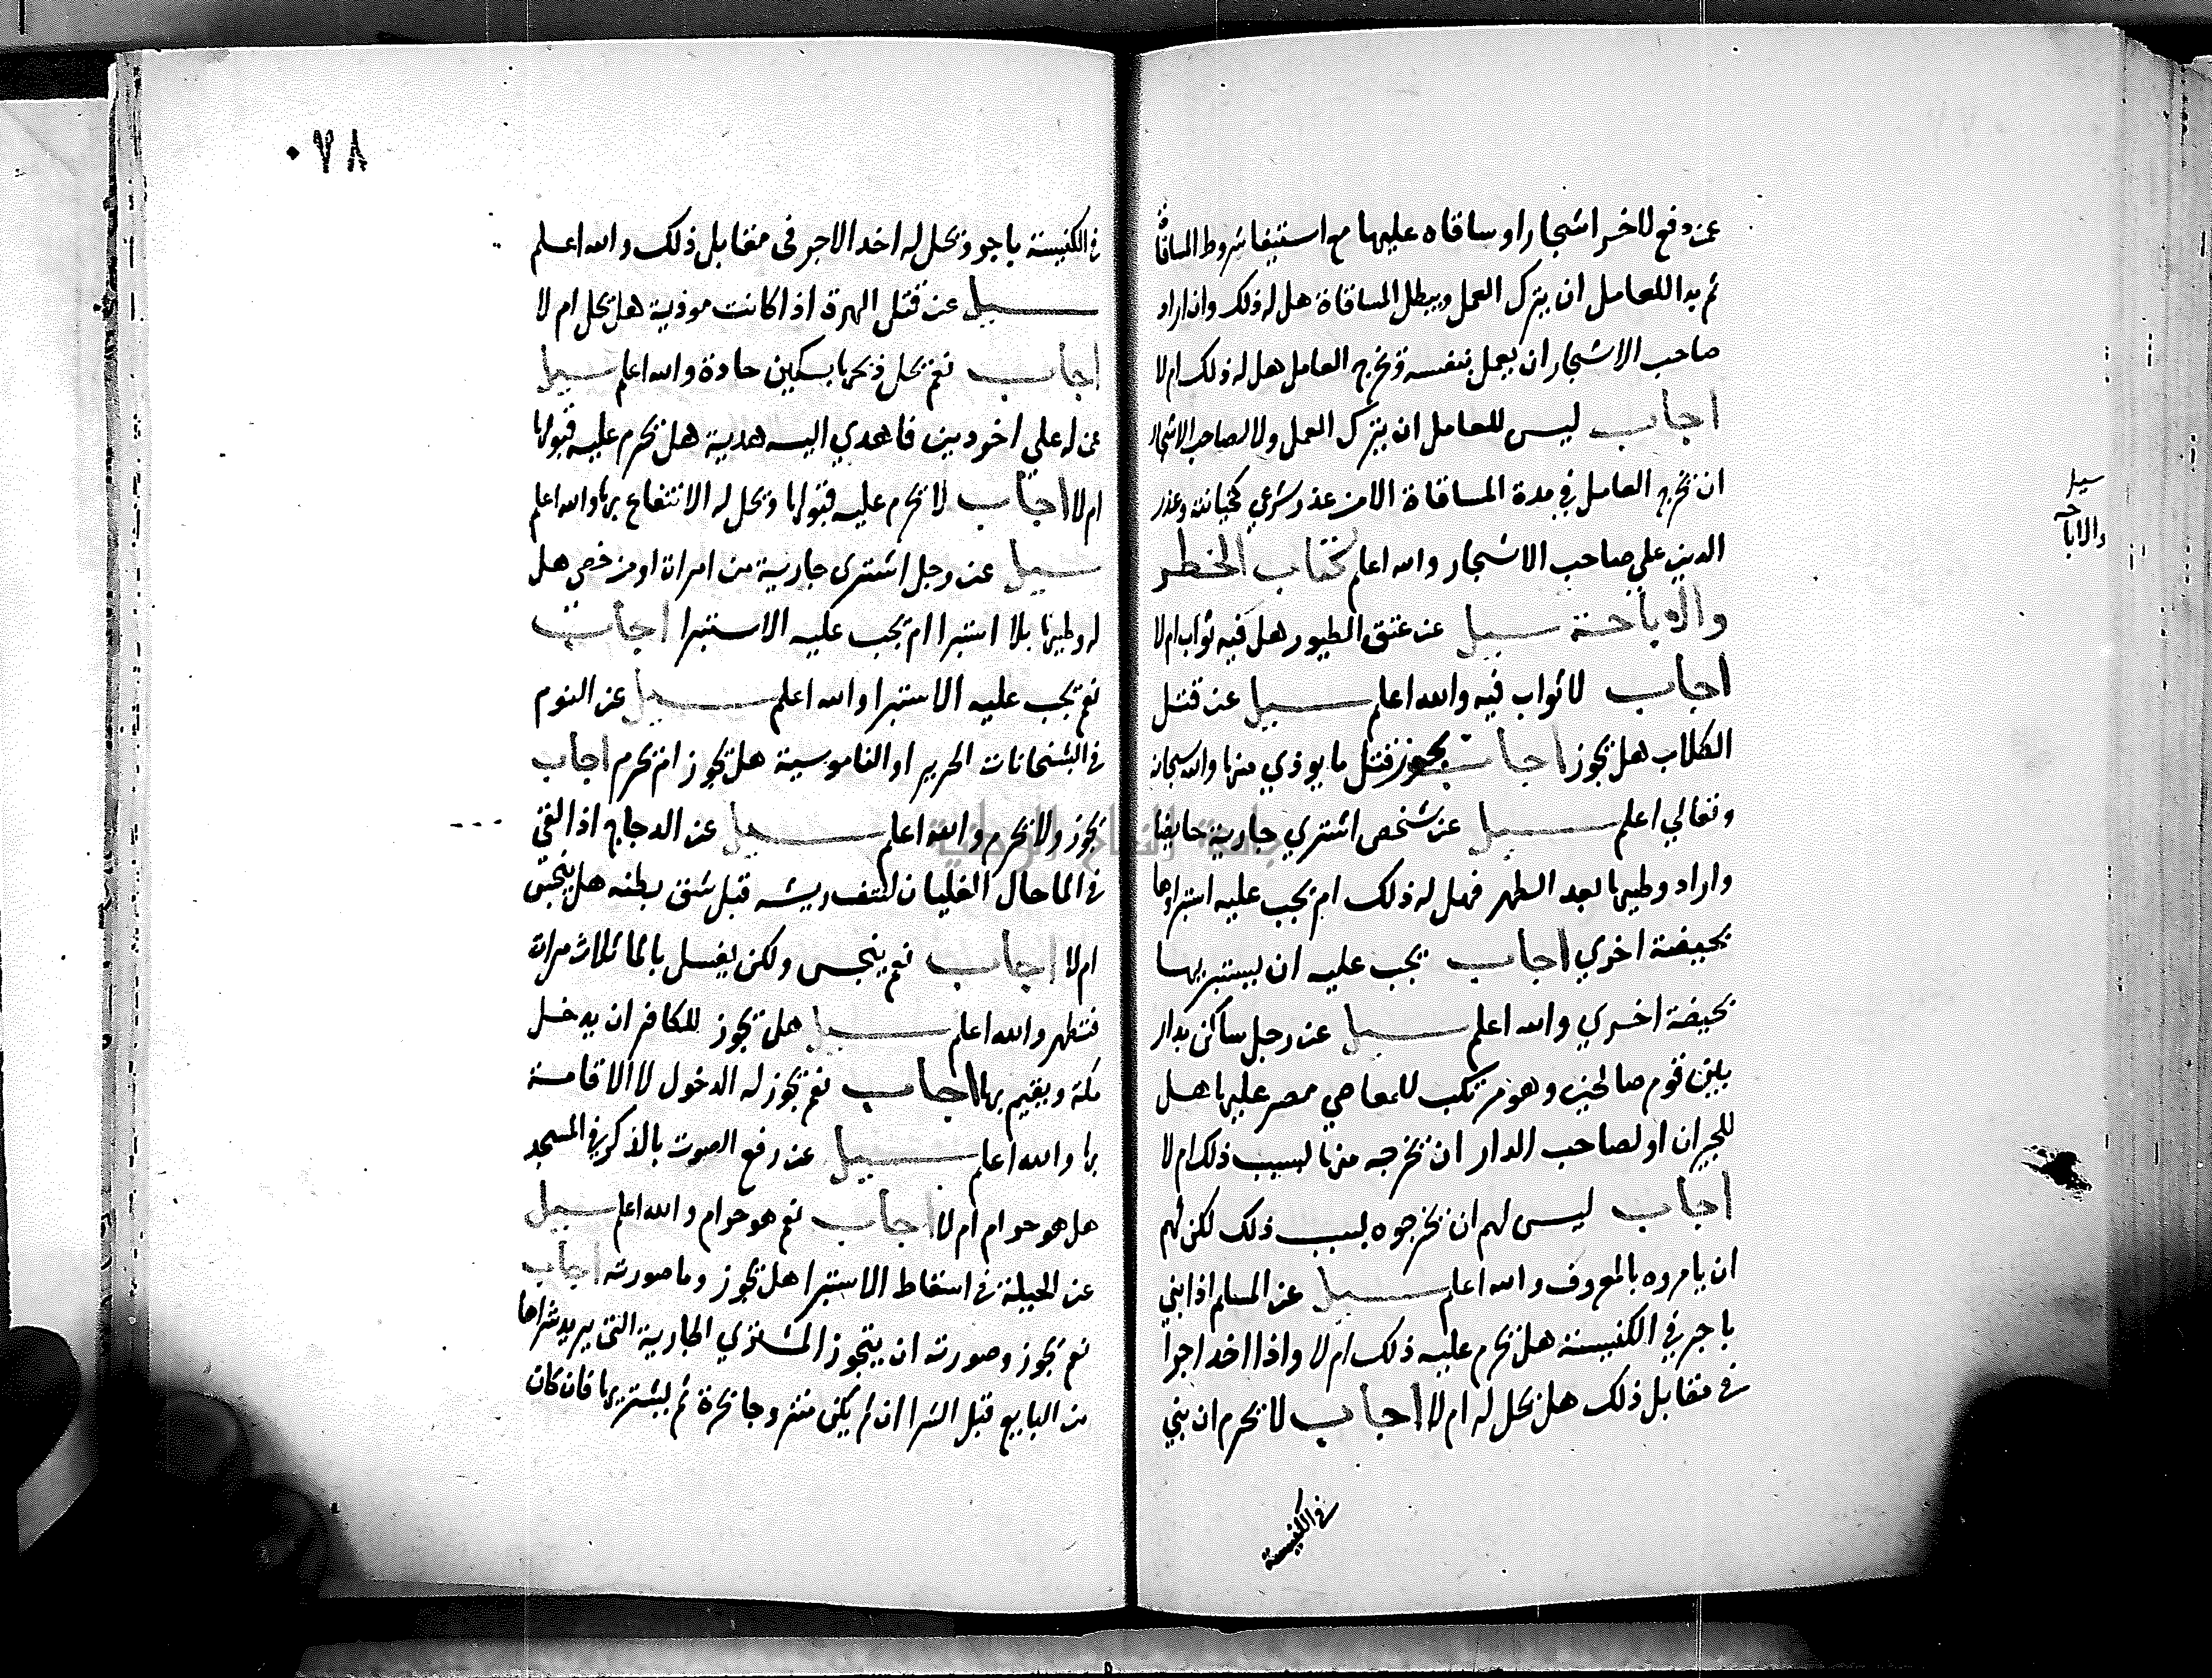 عن دفع لاخر اشجارا وساقاه عليها مع استيفا شروط المساقاة
ثم بدا للعامل ان يترك العمل ويبطل المساقاة هل له ذلك وان اراد
صاحب الاشجار ان يعمل بنفسه ويخرج العامل هل له ذلك ام لا
اجاب ليس للعامل ان يترك العمل ولا لصاحب الاشجار
ان يخرج العامل في مدة المساقاة الا من عذر شرعي كخيانته وعذر
الدين علي صاحب الاشجار والله اعلم كتاب الخطر
والاباحة سيل عن عتق الطيور هل فيه ثواب ام لا
اجاب لا ثواب فيه والله اعلم سيل عن قتل
الكلاب هل يجوز اجاب يجوز قتل ما يوذي منها والله سبحانه
وتعالي اعلم سيل عن شخص اشتري جارية حايضا
واراد وطيها بعد الطهر فهل له ذلك ام يجب عليه استبراوها
بحيضة اخري اجاب يجب عليه ان يستبريها
بحيضة اخري والله اعلم سيل عن رجل ساكن بدار
بين قوم صالحين وهو مرتكب للمعاصي مصر عليها هل
للجيران او لصاحب الدار ان يخرجه منها بسبب ذلك ام لا
اجاب ليس لهم ان يخرجوه بسبب ذلك لكن لهم
ان يامروه بالمعروف والله اعلم سيل عن المسلم اذا بني
باجر في الكنيسة هل يحرم عليه ذلك ام لا واذا اخد اجرا
في مقابل ذلك هل يحل له ام لا اجاب لا يحرم ان بني
في الكنيسة
سيل
والاباحة
٠٧٨
في الكنيسة باجر ويحل له اخد الاجر في مقابل ذلك والله اعلم
سيل عن قتل الهرة اذا كانت موذية هل يحل ام لا
اجاب نعم يحل ذبحها بسكين حادة والله اعلم سيل
عن له علي اخر دين فاهدي اليه هدية هل يحرم عليه قبولها
ام لا اجاب لا يحرم عليه قبولها ويحل له الانتفاع بها والله اعلم
سيل عن رجل اشتري جارية من امراة او من خصي هل
له وطيها بلا استبرا ام يجب عليه الاستبرا اجاب
نعم يجب عليه الاستبرا والله اعلم سيل عن النوم
في البشخانات الحرير او الناموسية هل يجوز ام يحرم اجاب
يجوز ولا يحرم والله اعلم سيل عن الدجاج اذا القي
في الما حال الغليان لنتف ريشه قبل شق بطنه هل يتنجس
ام لا اجاب نعم ينجس ولكن يغسل بالما ثلاث مرات
فتطهر والله اعلم سيل هل يجوز للكافر ان يدخل
مكة ويقيم بها اجاب نعم يجوز له الدخول لا الاقامة
بها والله اعلم سيل عن رفع الصوت بالذكر في المسجد
هل هو حرام ام لا اجاب نعم هو حرام والله اعلم سيل
عن الحيلة في اسقاط الاستبرا هل يجوز وما صورته اجاب
نعم يجوز وصورته ان يتجوز المشتري الجارية التي يريد شراها
من البايع قبل الشرا ان لم يكن متزوجا بحرة ثم يشتريها فان كان
جامعة النجاح الوطنية